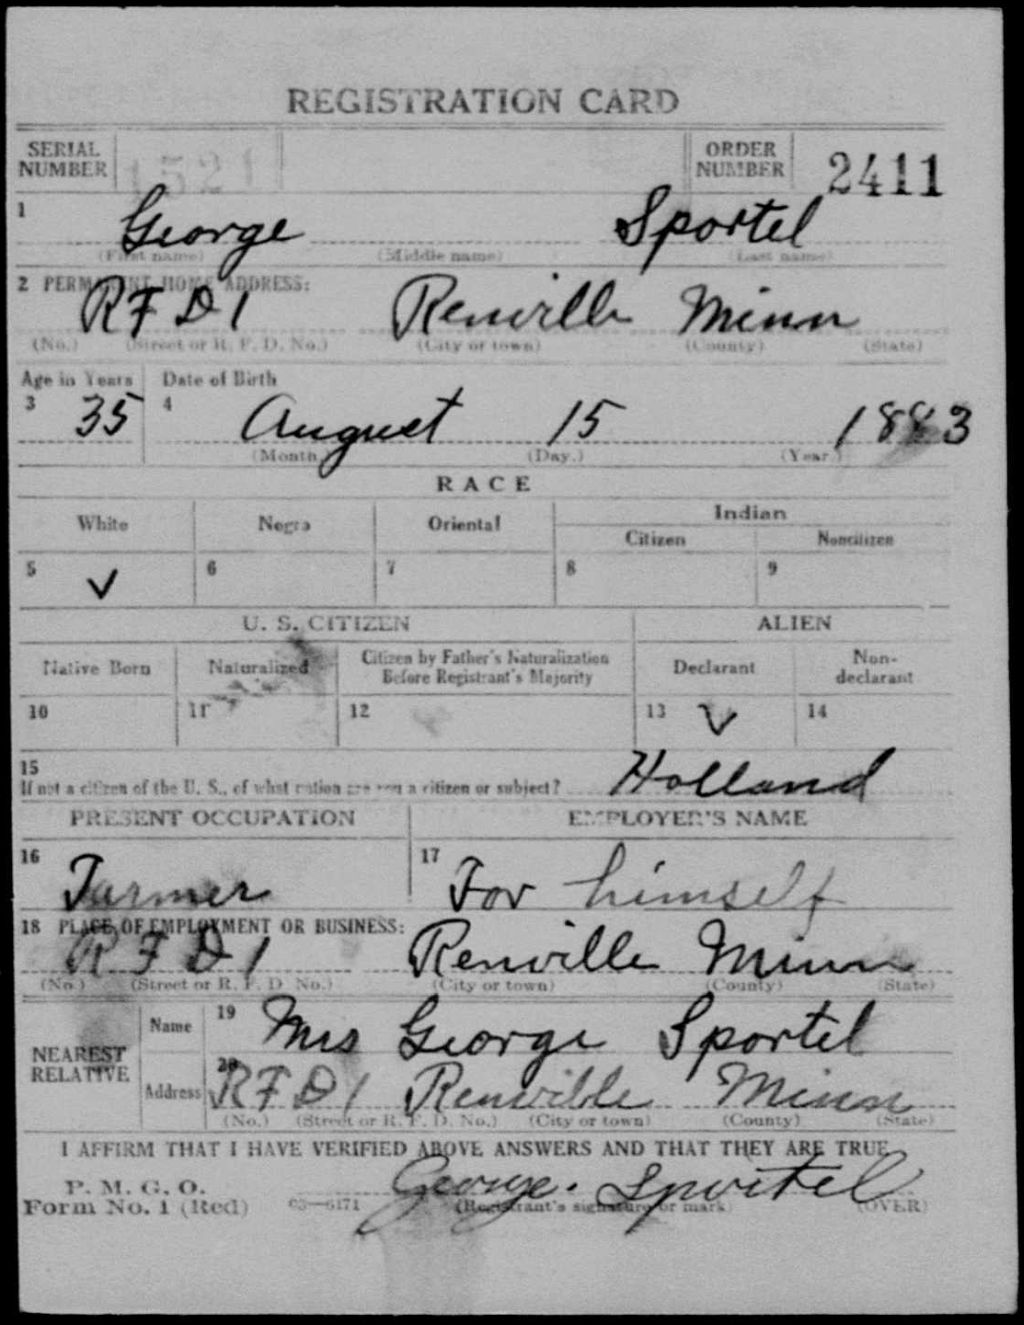 REGISTRATION CARD
SERIAL NUMBER 1521 ORDER NUMBER 2411
1 George Sportel
(First name) (Middle name) (Last name)
2 PERMANENT HOME ADDRESS:
RFD 1 Renville Minn
(No.) (Street or R. F. D. No.) (City or town) (County) (State)
Age in Years Date of Birth
3 35 4 August 15 1883
(Month.) (Day.) (Year.)
RACE
White Negro Oriental Indian
Citizen Noncitizen
5 ✓ 6 7 8 9
U. S. CITIZEN ALIEN
Native Born Naturalized Citizen by Father's Naturalization Before Registrant's Majority Declarant Non-declarant
10 11 12 13 ✓ 14
15
If not a citizen of the U. S., of what nation are you a citizen or subject? Holland
PRESENT OCCUPATION EMPLOYER'S NAME
16 Farmer 17 For himself
18 PLACE OF EMPLOYMENT OR BUSINESS:
RFD 1 Renville Minn
(No.) (Street or R. F. D. No.) (City or town) (County) (State)
NEAREST RELATIVE
Name 19 Mrs George Sportel
Address 20 RFD 1 Renville Minn
(No.) (Street or R. F. D. No.) (City or town) (County) (State)
I AFFIRM THAT I HAVE VERIFIED ABOVE ANSWERS AND THAT THEY ARE TRUE
P. M. G. O.
Form No. 1 (Red) 03—6171 George. Sportel
(Registrant's signature or mark) (OVER)